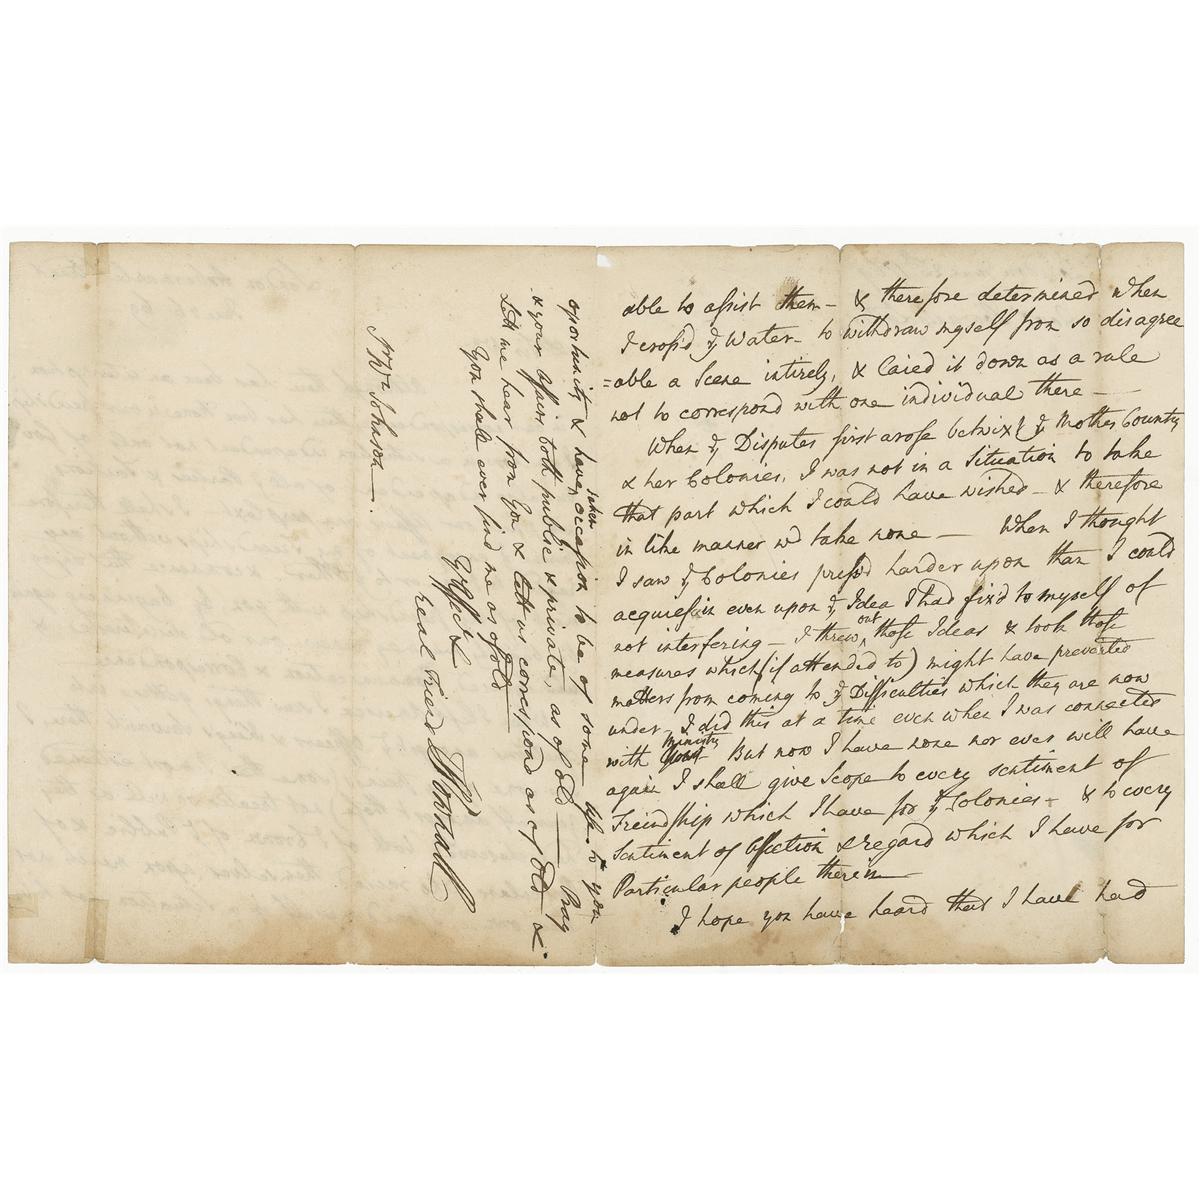 able to assist them — & therefore determined when
I cross'd yͤ Water — to withdraw myself from so disagree
=able a Scene intirely, & laied it down as a rule
not to correspond with one individual there —
When yͤ Disputes first arose betwixt yͤ Mother Country
& her Colonies, I was not in a Situation to take
that part which I could have wished — & therefore
in like manner wd take none — When I thought
I saw yͤ Colonies press'd harder upon than I could
acquiesce in even upon yͤ Idea I had fix'd to myself of
not interfering — I threw out those Ideas & took those
measures which (if attended to) might have prevented
matters from coming to yͤ Difficulties which they are now
under, & did this at a time even when I was connected
with ministry But now I have none nor ever will have
again I shall give Scope to every sentiment of
Freindship which I have for yͤ Colonies — & to every
Sentiment of affection & regard which I have for
Particular people therein —
I hope you have heard that I have had
opportunity & have taken occasion to be of some use to you
& your affairs both public & private, as of old — Pray
Lett me hear from You & lett us correspond as of Old &
You shall ever find me as of old
Yr Affect &
real Friend
T Pownall
Sr Wm Johnson —.